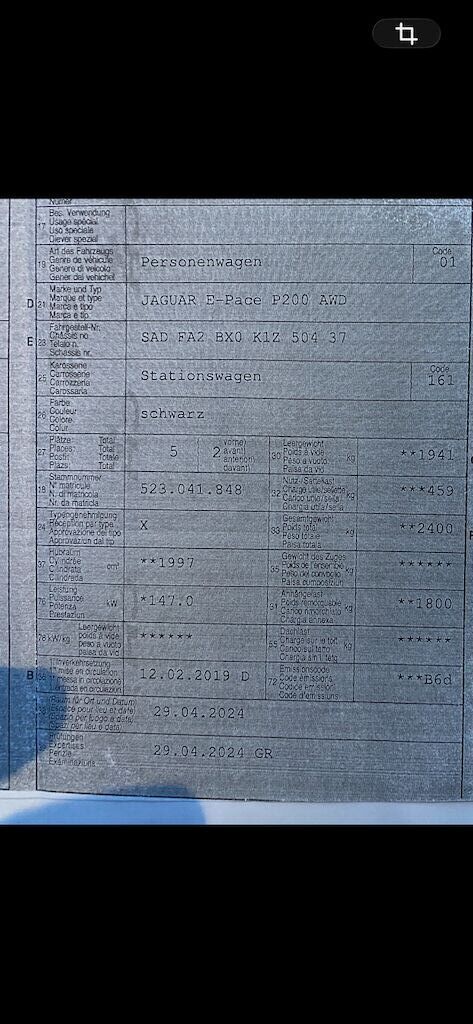 Numer
17 Bes. Verwendung
Usage spécial
Uso speciale
Diever spezial
19 Art des Fahrzeugs
Genre de véhicule
Genere di veicolo
Gener dal vehichel
Personenwagen
Code
01
D 21 Marke und Typ
Marque et type
Marca e tipo
Marca e tip
JAGUAR E-Pace P200 AWD
E 23 Fahrgestell-Nr.
Châssis no
Telaio n.
Schassis nr.
SAD FA2 BX0 K1Z 504 37
25 Karosserie
Carrosserie
Carrozzeria
Carossaria
Stationswagen
Code
161
26 Farbe
Couleur
Colore
Colur
schwarz
27 Plätze: Total
Places: Total
Posti: Totale
Plazs: Total
5
2
vorne)
avant)
anteriori)
davant)
30 Leergewicht
Poids à vide
Peso a vuoto
Paisa da vid
kg
**1941
18 Stammnummer
N° matricule
N. di matricola
Nr. da matricla
523.041.848
32 Nutz-/Sattellast
Charge utile/sellette
Carico utile/sella
Chargia utila/sella
kg
***459
Typengenehmigung
Réception par type
Approvazione del tipo
Approvaziun dal tip
X
33 Gesamtgewicht
Poids total
Peso totale
Paisa totala
kg
**2400
37 Hubraum
Cylindrée
Cilindrata
Cilindrada
cm³
**1997
35 Gewicht des Zuges
Poids de l'ensemble
Peso del convoglio
Paisa cumposiziun
kg
******
76 Leistung
Puissance
Potenza
Prestaziun
kW
*147.0
31 Anhängelast
Poids remorquable
Carico rimorchiab.
Chargia annexa
kg
**1800
78 kW/kg
Leergewicht
poids à vide
peso a vuoto
paisa da vid
******
55 Dachlast
Charge sur le toit
Carico sul tetto
Chargia sin il tetg
kg
******
B 36 1. Inverkehrsetzung
1re mise en circulation
1a messa in circolazione
1. entrada en circulaziun
12.02.2019 D
72 Emissionscode
Code émissions
Codice emissioni
Code d'emissiuns
***B6d
(Raum für Ort und Datum)
(Espace pour lieu et date)
(Spazio per luogo e data)
(Spazi per lieu e data)
29.04.2024
Prüfungen
Expertises
Perizie
Examinaziuns
29.04.2024 GR